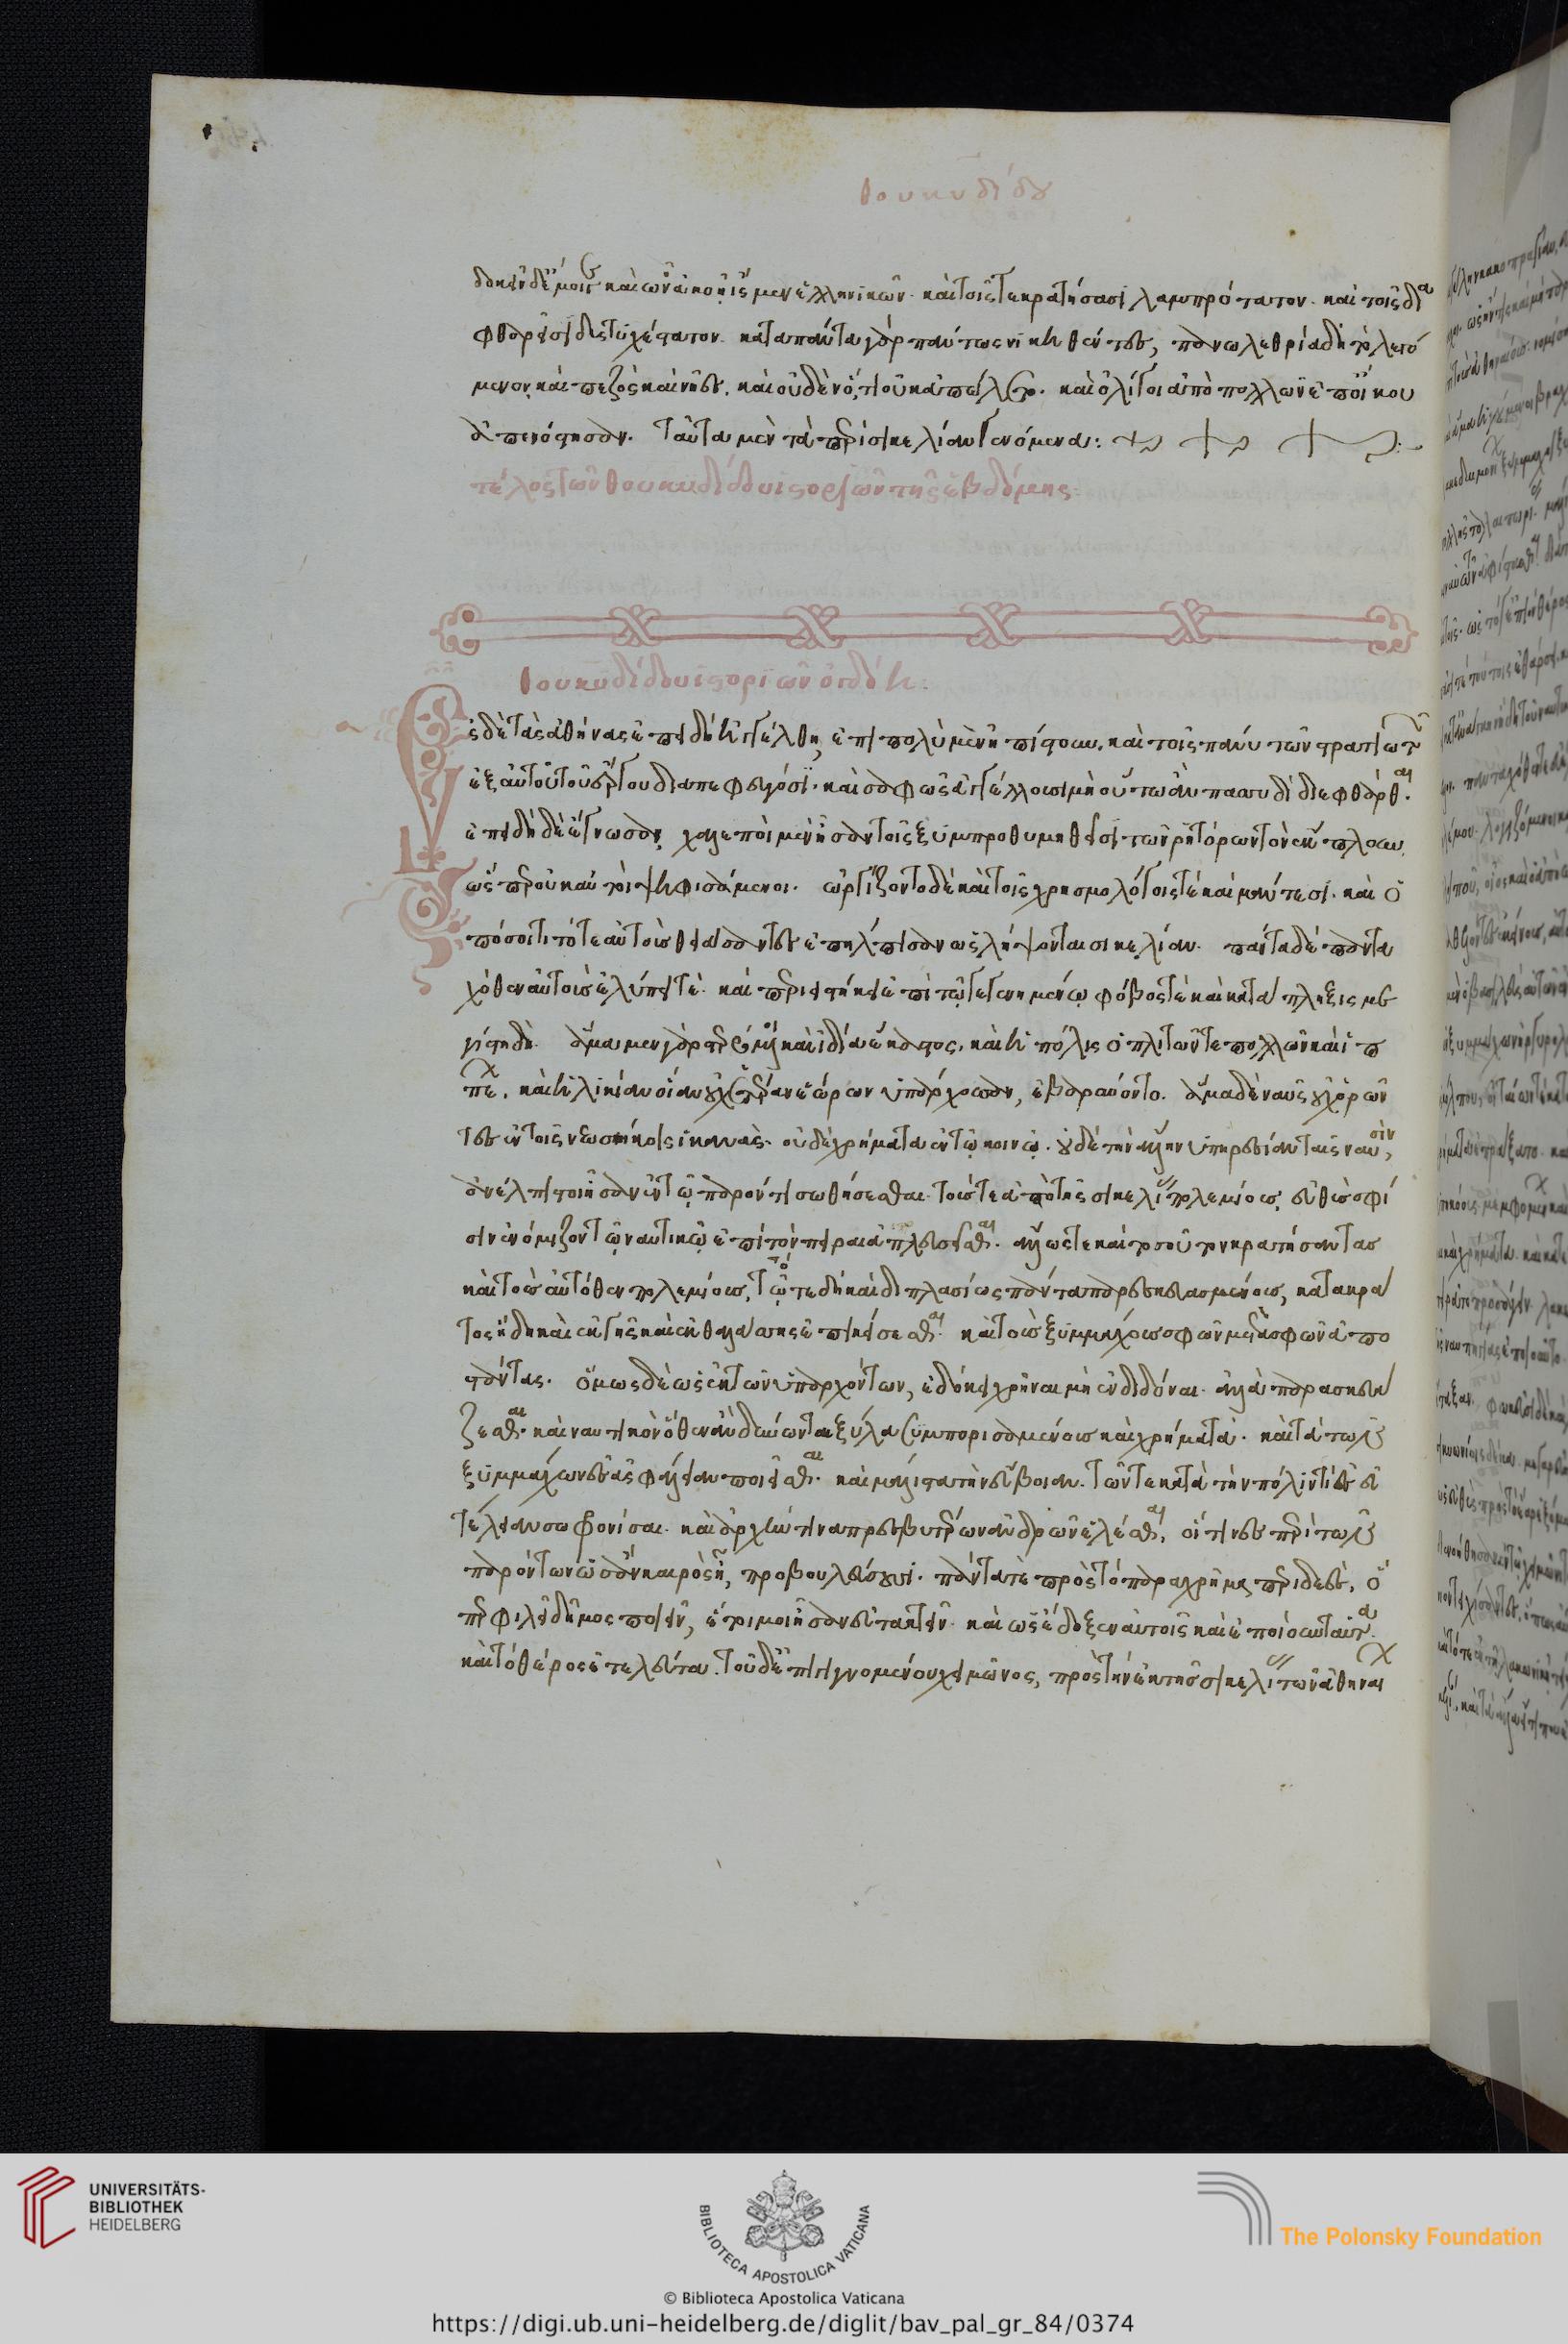 θουκυδίδου
δοκεῖν δ᾽ ἔμοιγε καὶ ὧν ἀκοῇ ἴσμεν ἑλληνικῶν. καὶ τοῖς τε κρατήσασι λαμπρότατον. καὶ τοῖς δια
φθαρεῖσι δυστυχέστατον. κατα πάντα γὰρ πάντως νικηθέντες, πανωλεθρία δὴ τὸ λεγό
μενον, καὶ πεζὸς καὶ νῆες. καὶ οὐδὲν ὅ,τι οὐκ ἀπώλετο. καὶ ὀλίγοι ἀπὸ πολλῶν ἐπ᾽ οἴκου
ἀπενόστησαν. ταῦτα μὲν τὰ περὶ σικελίαν γενόμενα:
τέλος τῶν θουκυδίδου ἱστοριῶν τῆς ἑβδόμης
θουκυδίδου ἱστοριῶν ὀγδόη:
Ἐς δὲ τὰς ἀθήνας ἐπειδὴ ἠγγέλθη, ἐπι πολὺ μὲν ἠπίστουν. καὶ τοῖς πάνυ τῶν στρατιωτῶν
ἐξ αὐτοῦ τοῦ ἔργου διαπεφευγόσι. καὶ σαφῶς ἀγγέλλουσι μὴ οὕτω ἂν πασσυδὶ διεφθάρθαι.
ἐπειδὴ δὲ ἔγνωσαν, χαλεποὶ μὲν ἦσαν τοῖς ξυμπροθυμηθεῖσι τῶν ῥητόρων τὸν ἔκπλουν.
ὥσπερ οὐκ αὐτοὶ ψηφισάμενοι. ὠργίζοντο δὲ καὶ τοῖς χρησμολόγοις τὲ καὶ μάντεσι. καὶ ὁ
πόσοι τι τότε αὐτοὺς θειάσαντες ἐπήλπισαν ὡς λήψονται σικελίαν. πάντα δὲ πάντα
χόθεν αὐτοὺς ἐλύπει τὲ. καὶ περιειστήκει ἐπὶ τῷ γεγενημένῳ φόβος τὲ καὶ κατάπληξις με
γίστη δὴ. ἅμα μὲν γὰρ στερόμενοι καὶ ἰδία ἕκαστος. καὶ ἡ πόλις ὁπλιτῶν τε πολλῶν καὶ ἱπ
πέων. καὶ ἡλικίαν οἵαν οὐχ ἑτέραν ἑώρων ὑπάρχουσαν, ἐβαρύνοντο. ἅμα δὲ ναῦς οὐχ ὁρῶν
τες ἐν τοῖς νεωσοίκοις ἱκανὰς. οὐδὲ χρήματα ἐν τῷ κοινῷ. οὐδὲ τὴν ἄλλην ὑπηρεσίαν ταῖς ναυσὶν,
ἀνέλπιστοι ἦσαν ἐν τῷ παρόντι σωθήσεσθαι. τούς τε ἀπὸ τῆς σικελίας πολεμίους, εὐθὺς σφί
σιν ἐνόμιζον τῷ ναυτικῷ ἐπὶ τὸν πειραιᾶ πλευσεῖσθαι. ἄλλως τε καὶ τοσοῦτον κρατήσαντας
καὶ τοὺς αὐτόθεν πολεμίους, τότε δὴ καὶ διπλασίως πάντα παρεσκευασμένους, κατακρά
τος ἤδη καὶ ἐκ γῆς καὶ ἐκ θαλάσσης ἐπικείσεσθαι. καὶ τοὺς ξυμμάχους σφῶν μετὰ σφῶν ἀπο
στάντας. ὅμως δὲ ὡς ἐκ τῶν ὑπαρχόντων, ἐδόκει χρῆναι μὴ ἐνδιδόναι. ἀλλὰ παρασκευά
ζεσθαι. καὶ ναυτικὸν ὅθεν ἂν δύνωνται ξύλα ξυμπορισαμένους καὶ χρήματα. καὶ τὰ τῶν
ξυμμάχων ἐς ἀσφάλειαν ποιεῖσθαι. καὶ μάλιστα τὴν εὔβοιαν. τῶν τε κατὰ τὴν πόλιν τί ἐς εὐ
τέλειαν σωφρονίσαι. καὶ ἀρχήν τινα πρεσβυτέρων ἀνδρῶν ἑλέσθαι, οἵτινες περὶ τῶν
παρόντων ὡς ἂν καιρὸς ᾖ, προβουλεύσουσι. πάντα τὲ πρὸς τὸ παραχρῆμα περιδεὲς, ὅ
περ φιλεῖ δῆμος ποιεῖν, ἑτοῖμοι ἦσαν εὐτακτεῖν. καὶ ὡς ἔδοξεν αὐτοῖς καὶ ἐποίουν ταῦτα.
καὶ τὸ θέρος ἐτελεύτα. τοῦ δ᾽ ἐπιγιγνομένου χειμῶνος, πρὸς τὴν ἐκ τῆς σικελίας τῶν ἀθηναί
UNIVERSITÄTS-
BIBLIOTHEK
HEIDELBERG
BIBLIOTECA APOSTOLICA VATICANA
The Polonsky Foundation
© Biblioteca Apostolica Vaticana
https://digi.ub.uni-heidelberg.de/diglit/bav_pal_gr_84/0374